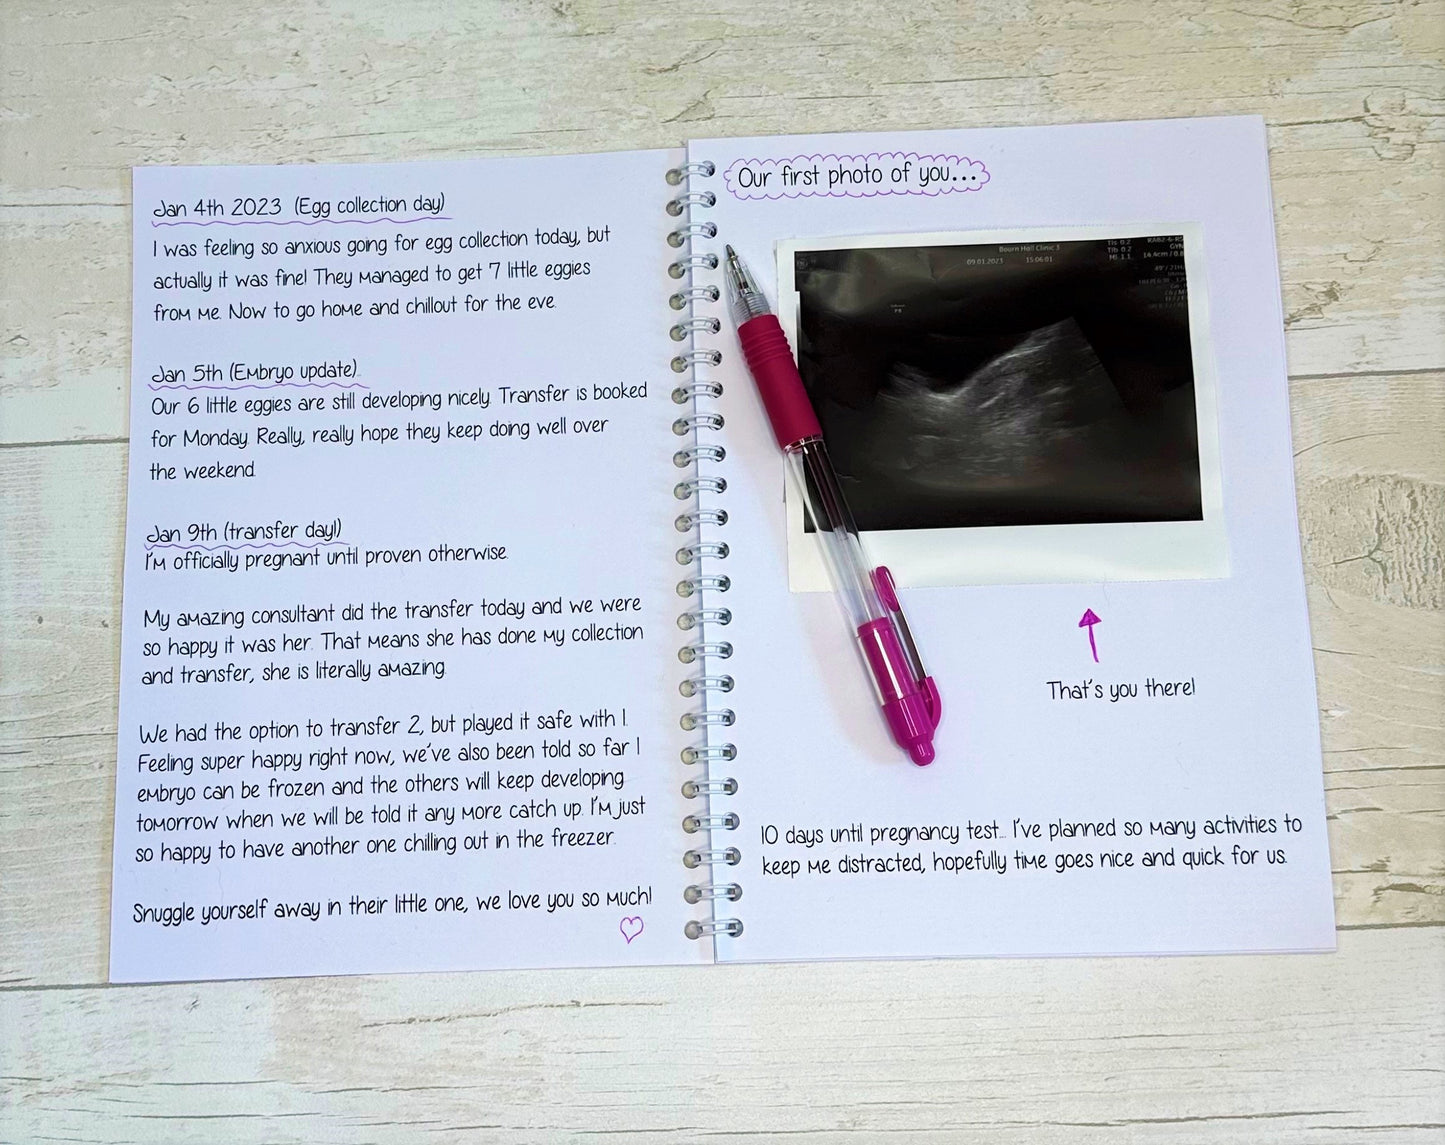 Jan 4th 2023 (Egg collection day)
I was feeling so anxious going for egg collection today, but
actually it was fine! They managed to get 7 little eggies
from me. Now to go home and chillout for the eve.
Jan 5th (Embryo update).
Our 6 little eggies are still developing nicely. Transfer is booked
for Monday. Really, really hope they keep doing well over
the weekend.
Jan 9th (transfer day!)
I'm officially pregnant until proven otherwise.
My amazing consultant did the transfer today and we were
so happy it was her. That means she has done my collection
and transfer, she is literally amazing.
We had the option to transfer 2, but played it safe with 1.
Feeling super happy right now, we've also been told so far 1
embryo can be frozen and the others will keep developing
tomorrow when we will be told it any more catch up. I'm just
so happy to have another one chilling out in the freezer.
Snuggle yourself away in their little one, we love you so much!
Our first photo of you...
Bourn Hall Clinic 3
09.01.2023 15:06:01
TIs 0.2
TIb 0.2
MI 1.1
RAB2-6-RS
GYN
14.4cm / 0.8
That's you there!
10 days until pregnancy test... I've planned so many activities to
keep me distracted, hopefully time goes nice and quick for us.